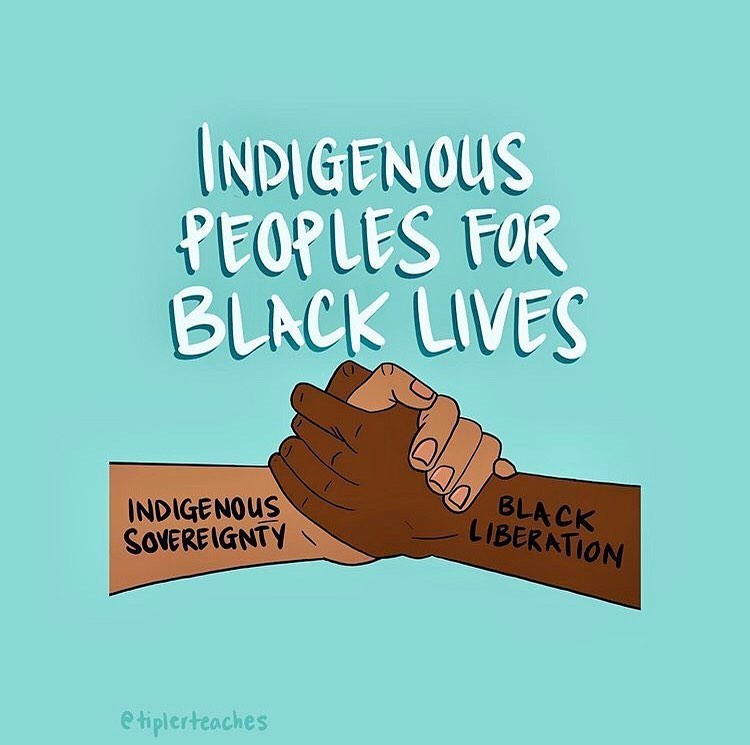 INDIGENOUS
PEOPLES FOR
BLACK LIVES
INDIGENOUS
SOVEREIGNTY
BLACK
LIBERATION
@tiplerteaches